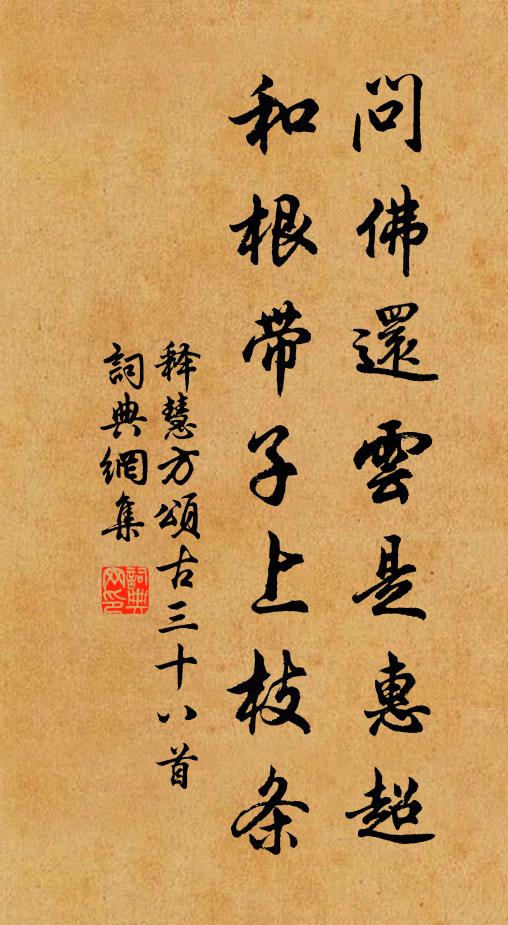 問佛還雲是惠超
和根带子上枝条
释慧方頌古三十八首
詞典網集
詞典网印